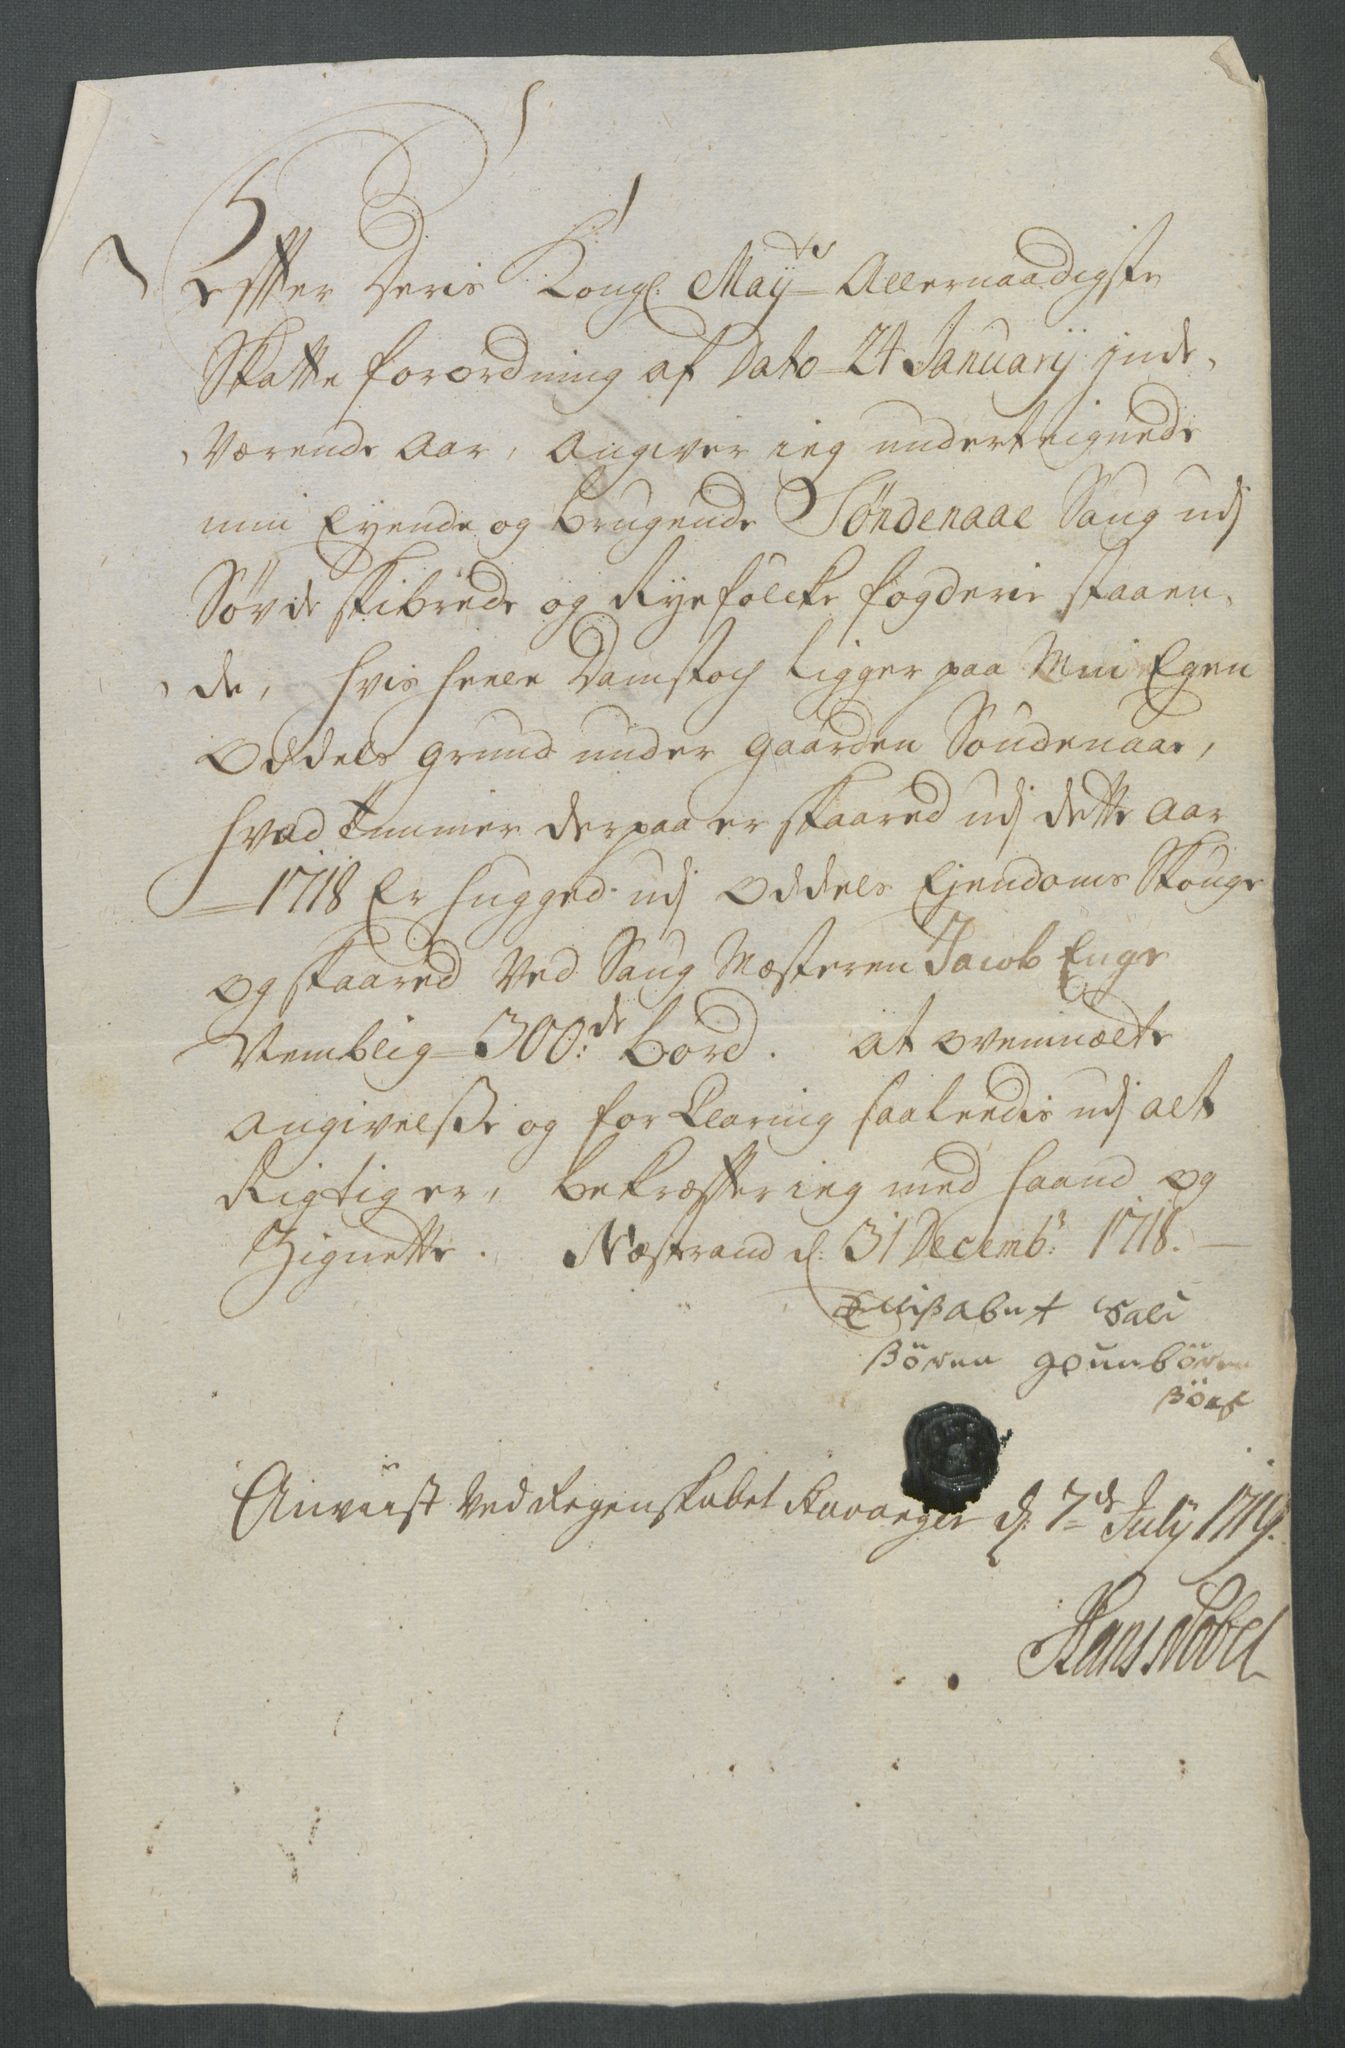 Effter Deris Kongl. Mayts Allernaadigste
Skatte forordning af Dato 24 Januarij inde,
værende Aar, Angiver ieg underteignede
min Eyende og brugende Søndenaae Saug udj
Søvde skibrede og Ryefölcke fogderie staaen,
de, hvis heele Damstoch ligger paa Min Egen
Oddels grund under gaarden Søndenaae,
hvad Tømmer derpaa er skaared udj dette Aar
1718 Er hugged udj Oddels Ejendoms Skouge
og skaared Ved Saug Mesteren Jacob Enge
Nemblig 300:de bord. At ovenmælte
angivelsse og forklaring saaleedis udj alt
Rigtig er, bekræffter ieg med haand og
Zignette. Næstrand d: 31 Decembr: 1718.
Elisabet Sali
Sören
Anviist Ved Regenskabet Stavanger d: 7de July 1719.
Hans Nobel